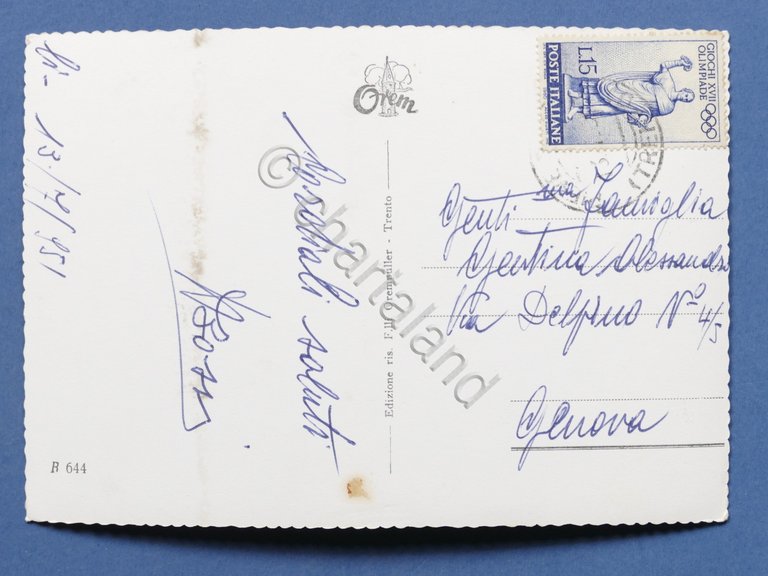 li- 13/7/951
Cordiali saluti
Orem
Edizione ris. F.lli Orempüller - Trento
R 644
L.15
POSTE ITALIANE
GIOCHI XVII
OLIMPIADE
(TRENTO
Gent.ma Famiglia
Alessandro
Via Delfino Nº 4/5
Genova
© chartaland